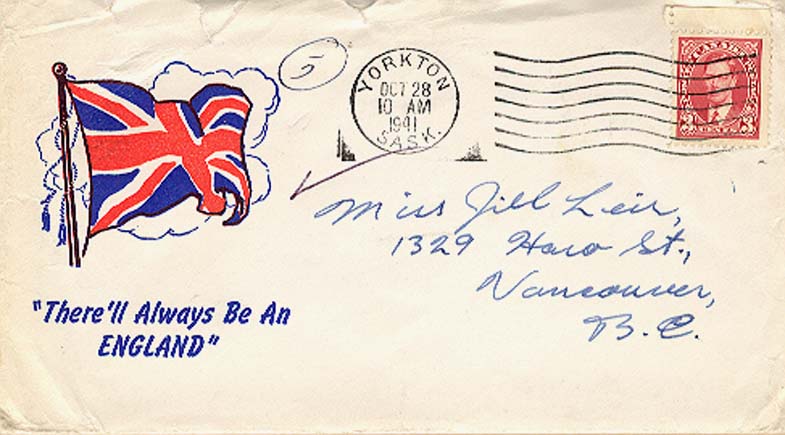 5
YORKTON
OCT 28
10 AM
1941
SASK.
3 3
Miss Jill Leir,
1329 Haro St.,
Vancouver,
B.C.
"There'll Always Be An
ENGLAND"